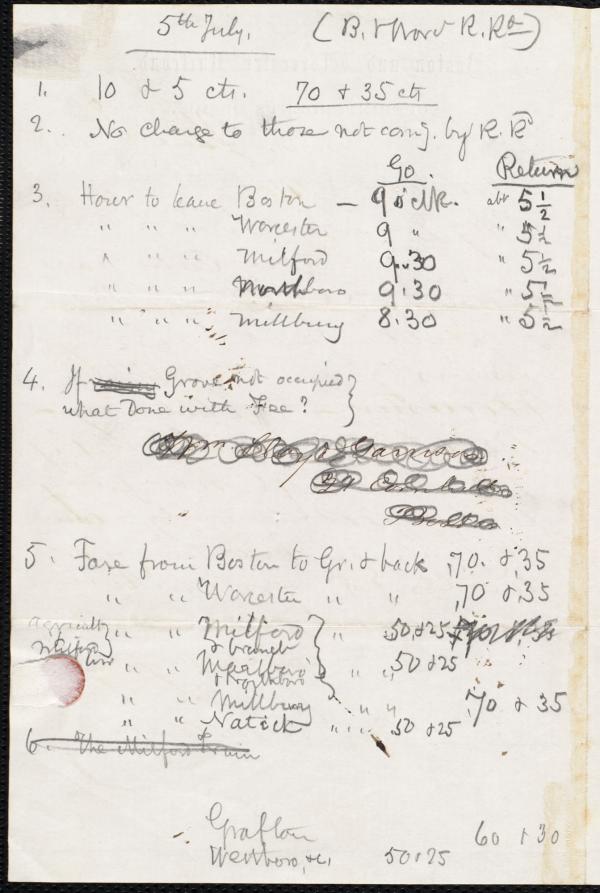 5th July. (B. & Worc R. Rd)
1. 10 & 5 cts. 70 & 35 cts
2. No charge to those not comg. by R. R
Go. Return
3. Hour to leave Boston — 9 o'clk. abt 5 1/2
" " " Worcester 9 " " 5 1/2
" " " Milford 9.30 " 5 1/2
" " " Northboro 9.30 " 5 1/2
" " " Millbury 8.30 " 5 1/2
4. If Grove not occupied
what Done with Fee?
Wm Lloyd Garrison
5. Fare from Boston to Gr. & back ,70. & ,35
" " Worcester " " ,70 & ,35
" " Milford " ,50 & 25
& branch
" " Marlboro " " ,50 & 25
& Northboro
" " Millbury " " ,70 & 35
" " Natick " " " ,50 & 25
6. The Milford Train
Grafton 60 & 30
Westboro, &c, 50 & 25